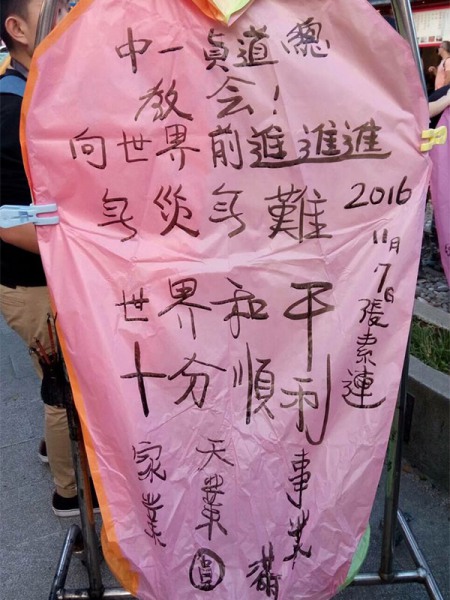 中一貞道總
教会！
向世界前進進進
无災无難
世界和平
十分順利
家業
天業
事業
圓滿
2016
11月
7日
張素連